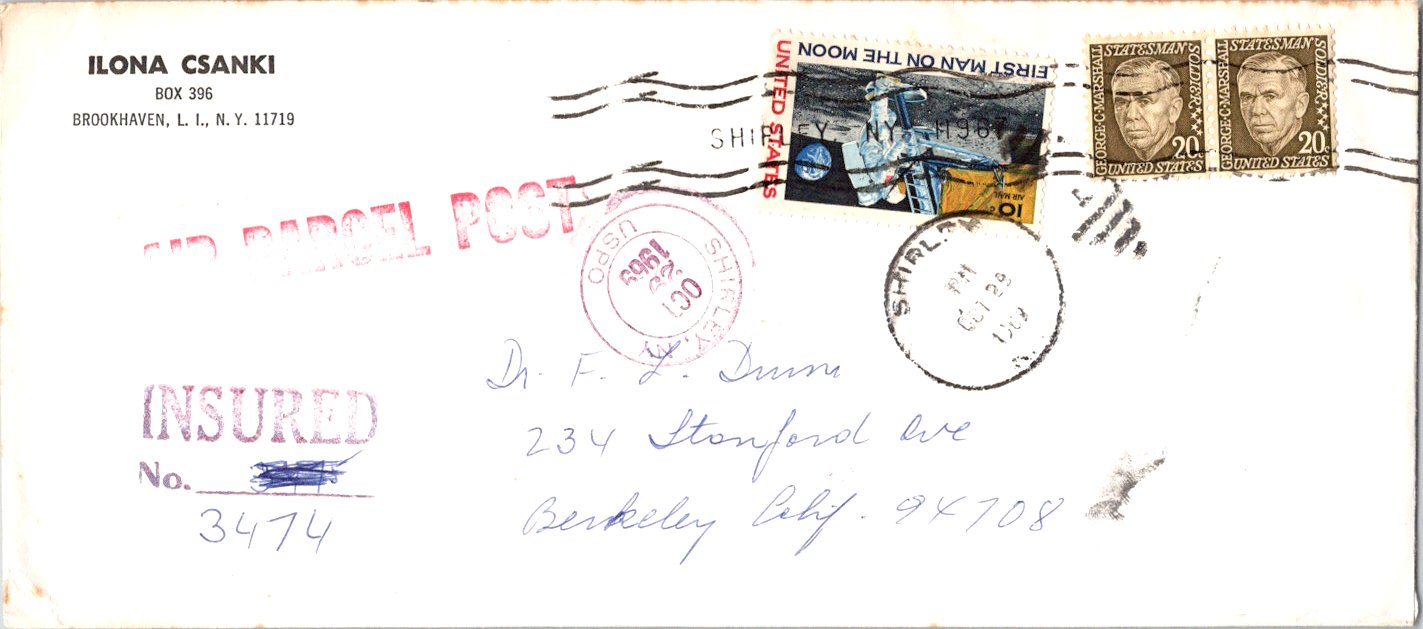 ILONA CSANKI
BOX 396
BROOKHAVEN, L. I., N. Y. 11719
FIRST MAN ON THE MOON
UNITED STATES
AIR MAIL
10c
GEORGE·C·MARSHALL
STATESMAN
SOLDIER
20c
UNITED STATES
GEORGE·C·MARSHALL
STATESMAN
SOLDIER
20c
UNITED STATES
SHIRLEY, NY 11967
AIR PARCEL POST
SHIRLEY, NY
OCT 29 1969
USPO
SHIRLEY
PM
OCT 29
1969
INSURED
No.
3474
Dr. F. L. Dunn
234 Stanford Ave
Berkeley Calif. 94708